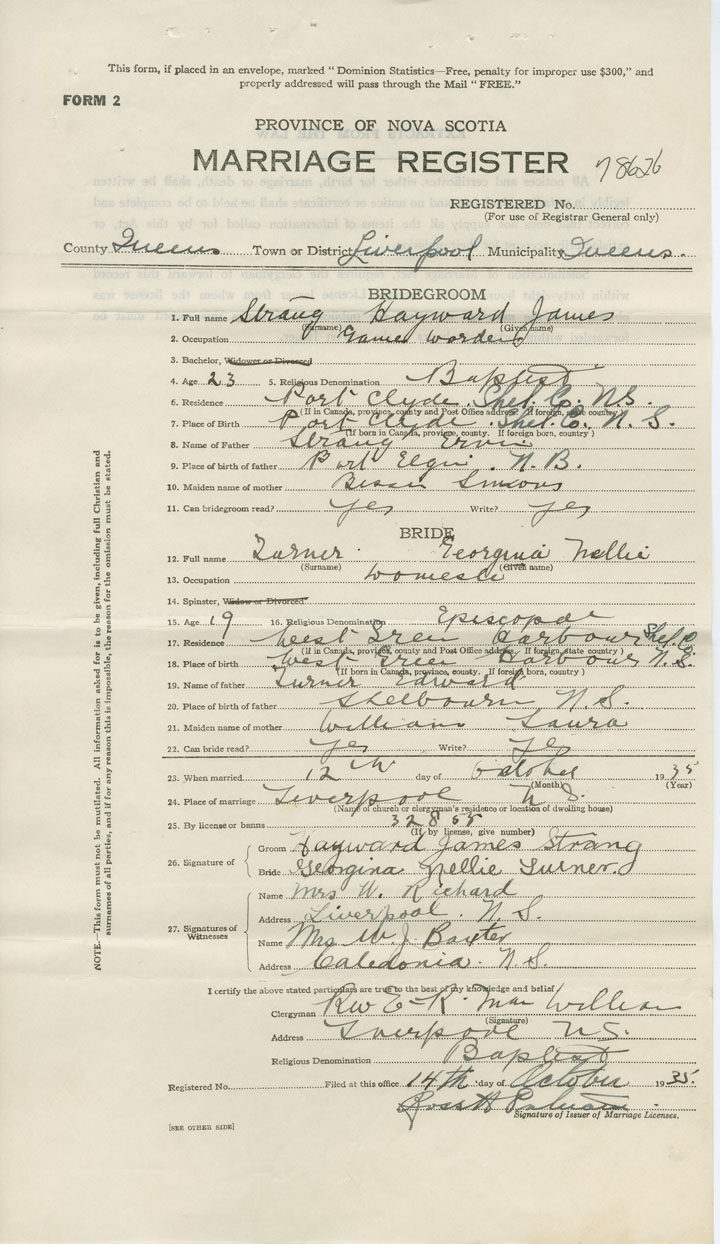 This form, if placed in an envelope, marked "Dominion Statistics—Free, penalty for improper use $300," and
properly addressed will pass through the Mail "FREE."
FORM 2
PROVINCE OF NOVA SCOTIA
MARRIAGE REGISTER 78626
REGISTERED No.
(For use of Registrar General only)
County Queens Town or District Liverpool Municipality Queens
BRIDEGROOM
1. Full name Strang Hayward James
(Surname) (Given name)
2. Occupation Game Warden
3. Bachelor, Widower or Divorced
4. Age 23 5. Religious Denomination Baptist
6. Residence Port Clyde Shel. Co. N.S.
(If in Canada, province, county and Post Office address. If foreign, state country)
7. Place of Birth Port Clyde Shel. Co. N. S.
(If born in Canada, province, county. If foreign born, country)
8. Name of Father Strang Ervin
9. Place of birth of father Port Elgin. N. B.
10. Maiden name of mother Simsons
11. Can bridegroom read? yes Write? yes
BRIDE
12. Full name Turner Georgina Nellie
(Surname) (Given name)
13. Occupation Domestic
14. Spinster, Widow or Divorced
15. Age 19 16. Religious Denomination Episcopal
17. Residence West Green Harbour Shel. Co
(If in Canada, province, county and Post Office address. If foreign, state country)
18. Place of birth West Green Harbour N. S.
(If born in Canada, province, county. If foreign born, country)
19. Name of father Turner Edward
20. Place of birth of father Shelbourn N. S.
21. Maiden name of mother Williams Laura
22. Can bride read? yes Write? yes
23. When married 12th day of October 1935
(Month) (Year)
24. Place of marriage Liverpool N. S.
(Name of church or clergyman's residence or location of dwelling house)
25. By license or banns 32855
(If by license, give number)
26. Signature of
Groom Hayward James Strang
Bride Georgina Nellie Turner.
27. Signatures of Witnesses
Name Mrs W. Richard
Address Liverpool. N. S.
Name Mrs W J. Baxter
Address Caledonia. N. S.
I certify the above stated particulars are true to the best of my knowledge and belief.
Clergyman Rev E. R. MacWilliam
(Signature)
Address Liverpool N.S.
Religious Denomination Baptist
Registered No. Filed at this office 14th day of October 1935.
Signature of Issuer of Marriage Licenses.
[SEE OTHER SIDE]
NOTE.—This form must not be mutilated. All information asked for is to be given, including full Christian and
surnames of all parties, and if for any reason this is impossible, the reason for the omission must be stated.